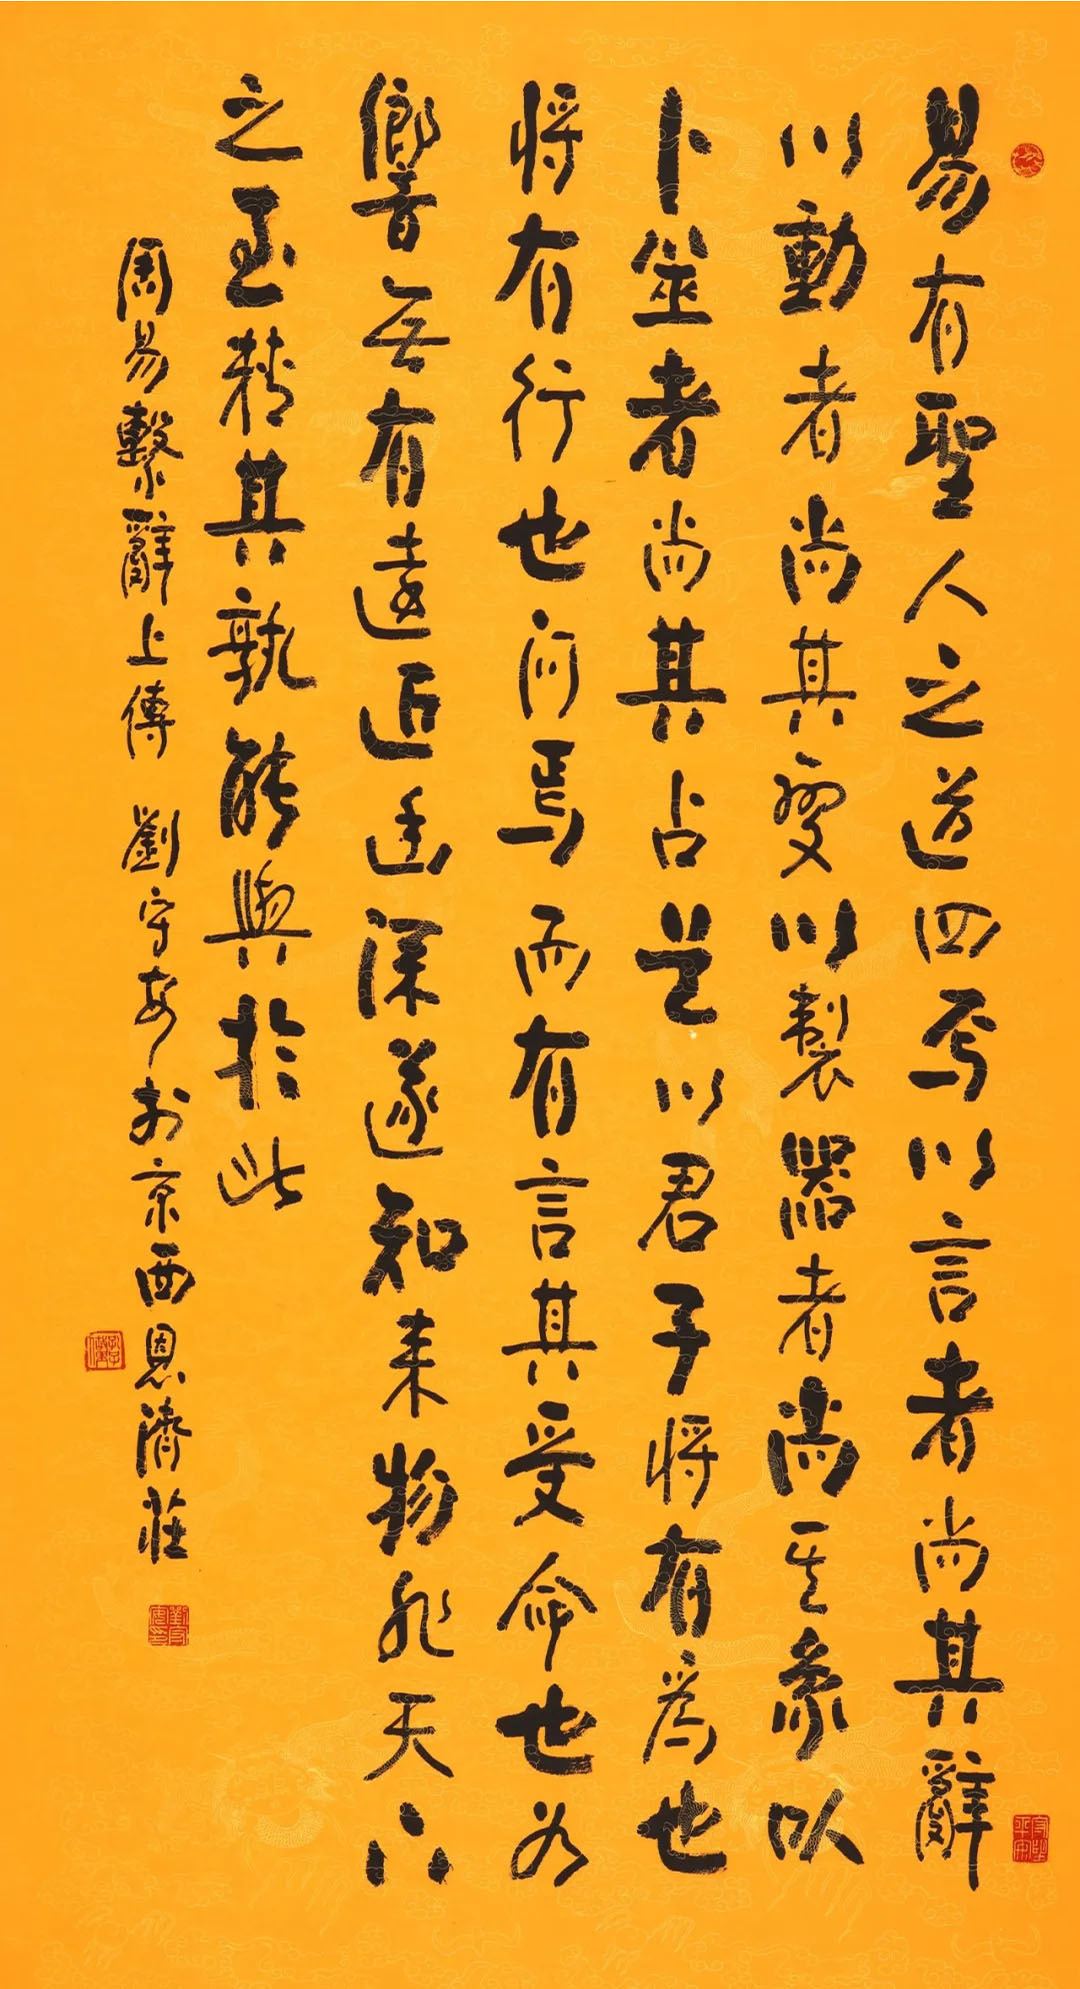 易有聖人之道四焉以言者尚其辭
以動者尚其變以製器者尚其象以
卜筮者尚其占是以君子将有為也
将有行也问焉而有言其受命也如
響無有遠近幽深遂知来物非天下
之至精其孰能與於此
周易繫辭上傳 劉守安於京西恩濟莊